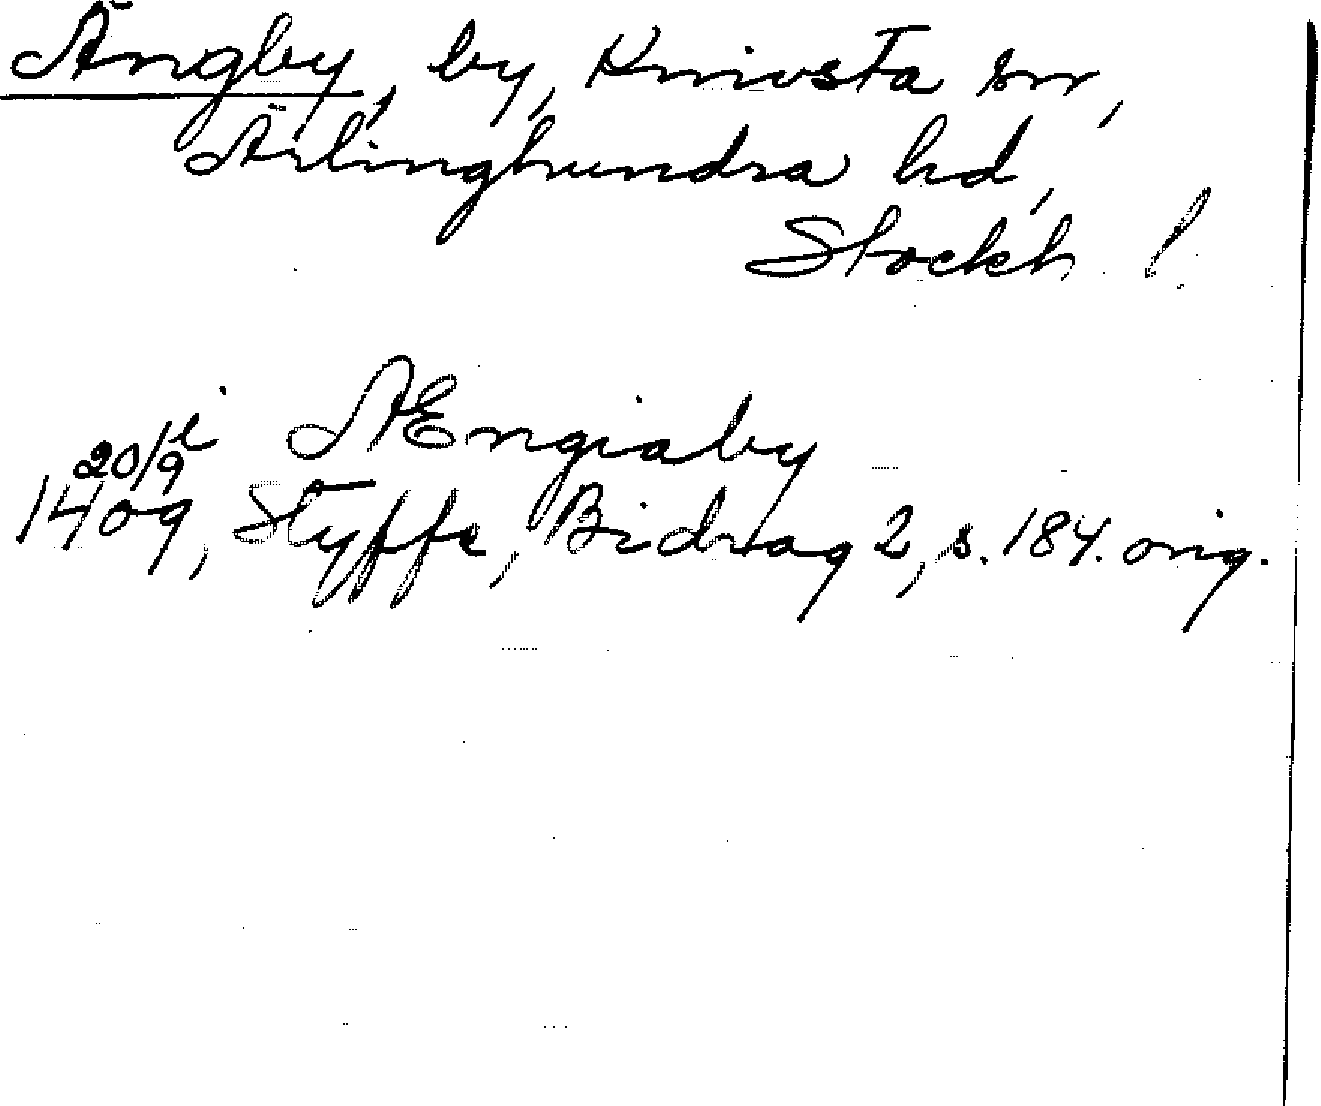 Ängby, by, Knivsta sn,
Ärlinghundra hd,
Stockh. l.
i Ængiaby
20/9 1409, Styffe, Bidrag 2, s. 184. orig.